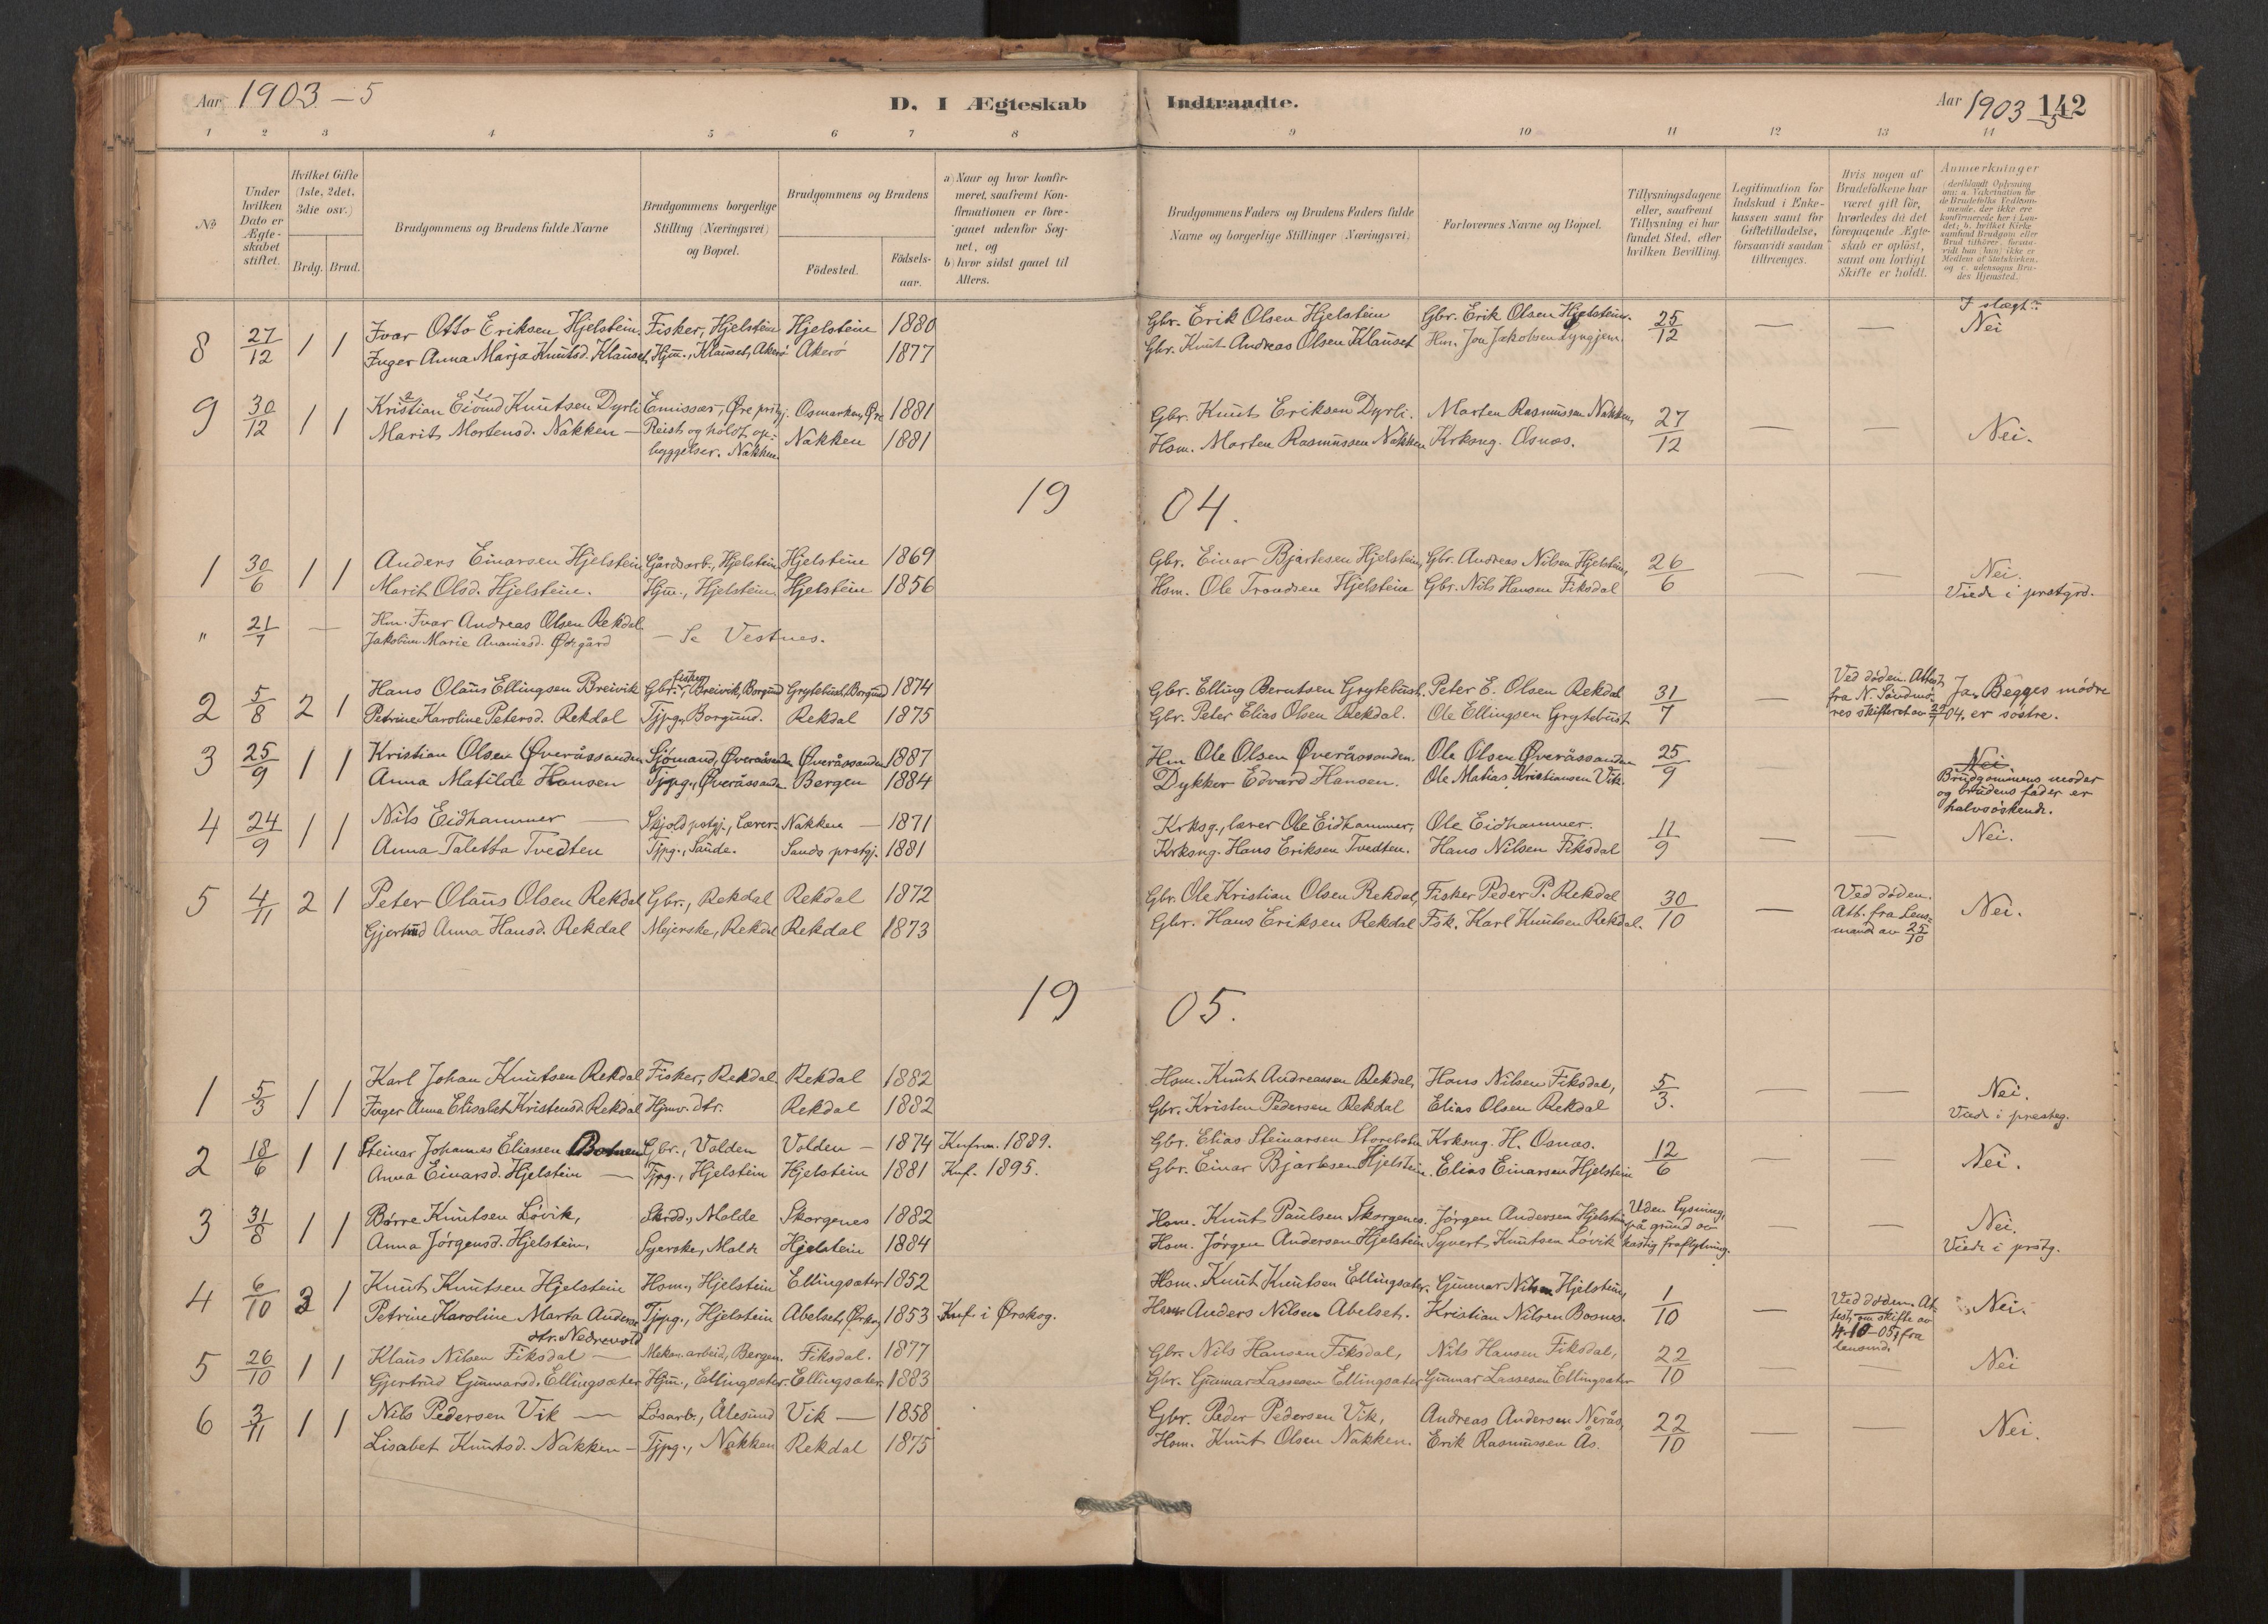 Aar 1903 - 5
D. I Ægteskab
Indtraadte.
Aar 1903 - 5
142
1 2 3 4 5 6 7 8 9 10 11 12 13 14
No
Under hvilken Dato er Ægteskabet stiftet.
Hvilket Gifte (1ste, 2det, 3die osv.)
Brdg. Brud.
Brudgommens og Brudens fulde Navne
Brudgommens borgerlige Stilling (Næringsvei) og Bopæl.
Brudgommens og Brudens
Födested.
Födselsaar.
a) Naar og hvor konfirmeret, saafremt Konfirmationen er foregaaet udenfor Sognet, og
b) hvor sidst gaaet til Alters.
Brudgommens Faders og Brudens Faders fulde Navne og borgerlige Stillinger (Næringsvei)
Forlovernes Navne og Bopæl.
Tillysningsdagene eller, saafremt Tillysning ei har fundet Sted, efter hvilken Bevilling.
Legitimation for Indskud i Enkekassen samt for Giftetilladelse, forsaavidt saadan tiltrænges.
Hvis nogen af Brudefolkene har været gift för, hvorledes da det foregaaende Ægteskab er oplöst, samt om lovligt Skifte er holdt.
Anmærkninger
8 27/12 1 1 Ivar Otto Eriksen Hjelstein. Fisker, Hjelstein Hjelstein 1880 Gbr. Erik Olsen Hjelstein Gbr. Erik Olsen Hjelstein. 25/12 — — I slægt: Nei
Inger Anna Marja Knutsd. Klauset, Hjm., Klauset, Akerö Akerö 1877 Gbr. Knut Andreas Olsen Klauset Hm. Jon Jakobsen Lyngjem.
9 30/12 1 1 Kristian Eivind Knutsen Dyrli Emissær, Øre prstgj. Osmarken, Øre 1881 Gbr. Knut Eriksen Dyrli. Morten Rasmussen Nakken, 27/12 — — Nei.
Marit Mortensd. Nakken — Reist og holdt op- Nakken 1881 Hsm. Morten Rasmussen Nakken Krksng. Osnæs.
byggelser. Nakken.
19 04.
1 30/6 1 1 Anders Einarsen Hjelstein Gårdsarb., Hjelstein Hjelstein 1869 Gbr. Einar Bjartesen Hjelstein, Gbr. Andreas Nilsen Hjelstein, 26/6 — — Nei.
Marit Olsd. Hjelstein. Hjm., Hjelstein. Hjelstein 1856 Hsm. Ole Trondsen Hjelstein Gbr. Nils Hansen Fiksdal Viede i prstgrd.
" 21/7 — Hm. Ivar Andreas Olsen Rekdal
Jakobine Marie Ananiasd. Ødegård — Se Vestnes.
2 5/8 2 1 Hans Olaus Ellingsen Breivik Gbr. fisker, Breivik, Borgund Grytebust, Borgund 1874 Gbr. Elling Berntsen Grytebust. Peter E. Olsen Rekdal 31/7 — Ved döden. Attest fra N. Söndmöres skifteret av 29/7 04. Ja, Begges mödre er söstre.
Petrine Karoline Petersd. Rekdal Tjpg., Borgund. Rekdal 1875 Gbr. Peter Elias Olsen Rekdal. Ole Ellingsen Grytebust
3 25/9 1 1 Kristian Olsen Øveråssanden Sjömand, Øveråssanden Øveråssanden 1887 Hm Ole Olsen Øveråssanden. Ole Olsen Øveråssanden 25/9 Nei
Anna Matilde Hansen Tjpg., Øveråssanden Bergen 1884 Dykker Edvard Hansen. Ole Matias Kristiansen Vik.
Brudgommens moder og brudens fader er halvsöskende.
4 24/9 1 1 Nils Eidhammer — Skjold pstgj., Lærer. Nakken — 1871 Krksg., lærer Ole Eidhammer, Ole Eidhammer. 11/9 — — Nei.
Anna Taletta Tvedten Tjpg., Sande. Sands prstgj. 1881 Krksng. Hans Eriksen Tvedten. Hans Nilsen Fiksdal
5 4/11 2 1 Peter Olaus Olsen Rekdal Gbr., Rekdal Rekdal 1872 Gbr. Ole Kristian Olsen Rekdal, Fisker Peder P. Rekdal 30/10 — Ved döden. Att. fra Lensmand av 25/10 Nei.
Gjertrud Anna Hansd. Rekdal Mejerske, Rekdal Rekdal 1873 Gbr. Hans Eriksen Rekdal Fsk. Karl Knutsen Rekdal.
19 05.
1 5/3 1 1 Karl Johan Knutsen Rekdal Fisker, Rekdal. Rekdal 1882 Hsm. Knut Andreassen Rekdal, Hans Nilsen Fiksdal, 5/3. — — Nei.
Inger Anna Elisabet Kristensd. Rekdal Hjmv. dtr. Rekdal 1882 Gbr. Kristen Pedersen Rekdal Elias Olsen Rekdal Viede i presteg.
2 18/6 1 1 Steinar Johannes Eliassen Botnen Gbr., Volden Volden — 1874 Knfrm. 1889. Gbr. Elias Steinarsen Storebotn Krksng. H. Osnæs. 12/6 — — Nei.
Anna Einarsd. Hjelstein — Tjpg., Hjelstein Hjelstein 1881 Knf. 1895. Gbr. Einar Bjartesen Hjelstein. Elias Einarsen Hjelstein
3 31/8 1 1 Børre Knutsen Lövik, Skrdd., Molde Skorgenes 1882 Hsm. Knut Paulsen Skorgenes. Jörgen Andersen Hjelstein Uden lysning, på grund av hastig fraflytning. — — Nei.
Anna Jörgensd. Hjelstein, Syerske, Molde Hjelstein 1884 Hsm. Jörgen Andersen Hjelstein Syvert Knutsen Lövik Viede i prstg.
4 6/10 3 1 Knut Knutsen Hjelstein Hsm., Hjelstein Ellingsæter 1852 Hsm. Knut Knutsen Ellingsæter. Gunnar Nilsen Hjelstein, 1/10 — Ved döden. Attest om skifte av 4-10-05, fra lensmd. Nei.
Petrine Karoline Marta Anders- Tjpg., Hjelstein Abelset, Ørskog 1853 Knf. i Ørskog. Hsm Anders Nilsen Abelset. Kristian Nilsen Bosnes.
dtr. Nedrevold
5 26/10 1 1 Klaus Nilsen Fiksdal — Mekan. arbeid, Bergen. Fiksdal. 1877 Gbr. Nils Hansen Fiksdal, Nils Hansen Fiksdal, 22/10 — — Nei
Gjertrud Gunnarsd. Ellingsæter Hjm., Ellingsæter. Ellingsæter. 1883 Gbr. Gunnar Lassesen Ellingsæter Gunnar Lassesen Ellingsæter
6 3/11 1 1 Nils Pedersen Vik — Lösarb., Ålesund Vik — 1858 Gbr. Peder Pedersen Vik, Andreas Andersen Nerås, 22/10 — — Nei.
Lisabet Knutsd. Nakken — Tjpg., Nakken Rekdal 1875 Hsm. Knut Olsen Nakken. Erik Rasmussen Ås.